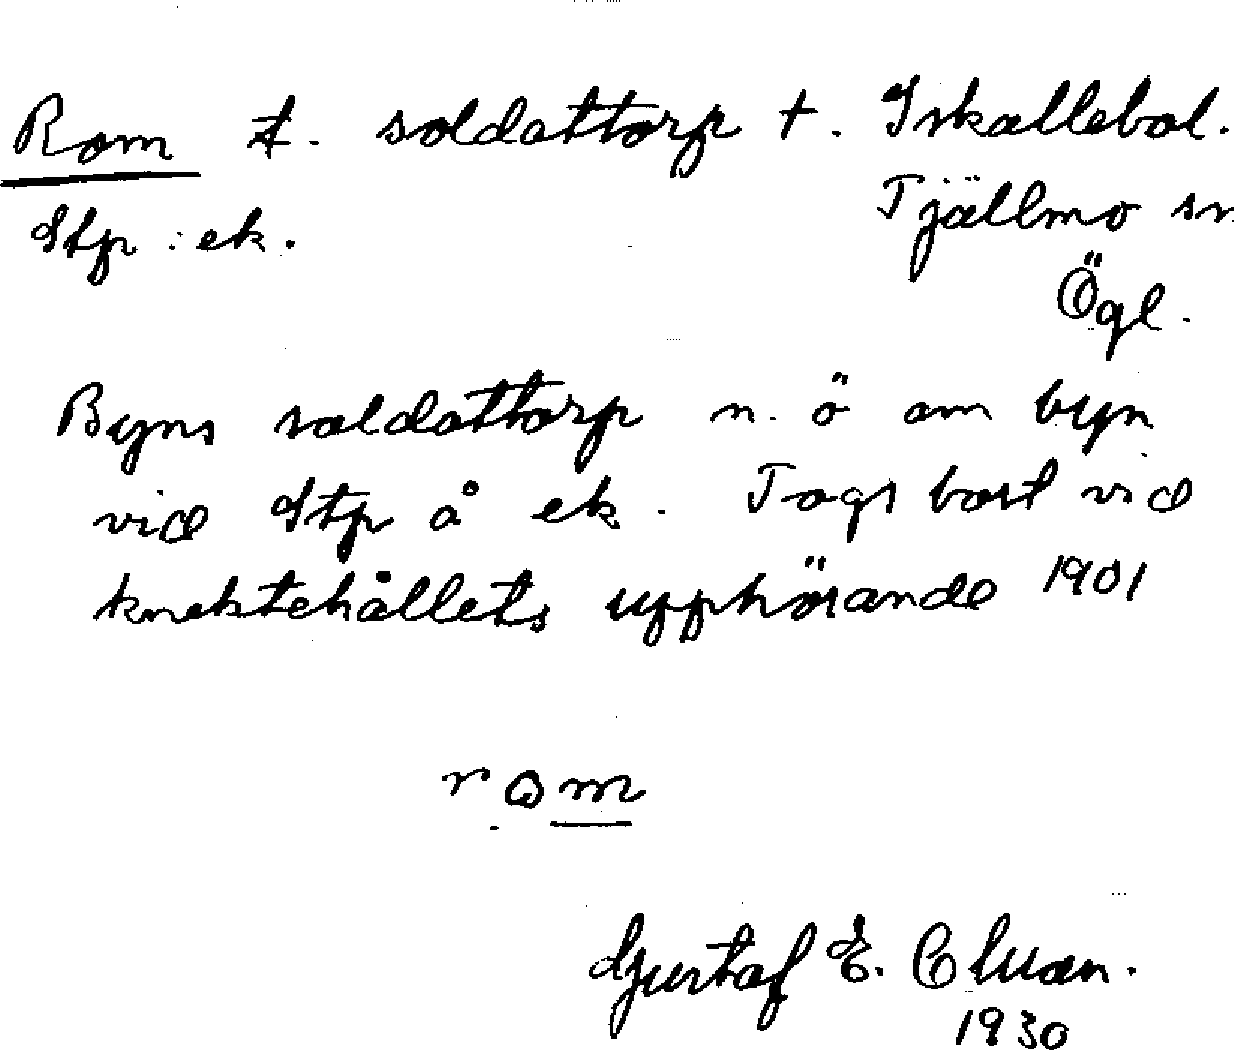 Rom †. soldattorp t. Iskallebol.
Stp : ek. Tjällmo sn
Ögl.
Byns soldattorp n. ö om byn
vid Stp å ek. Togs bort vid
knektehållets upphörande 1901
rom
Gustaf E.
1930